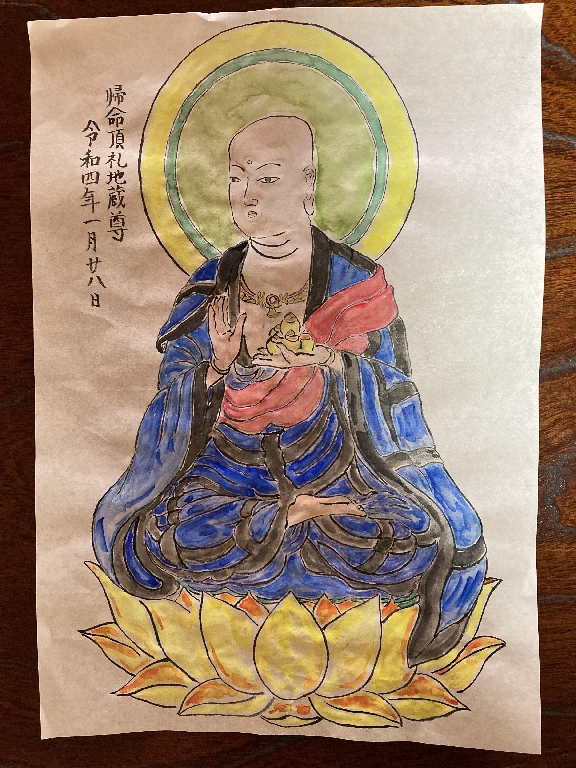 帰命頂礼地蔵尊
令和四年一月廿八日